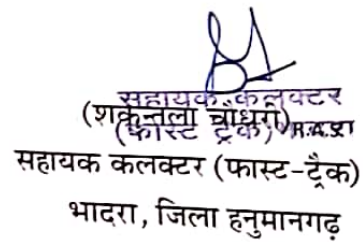 सहायक कलक्टर
(शकुन्तला चौधरी)
(फास्ट ट्रैक) R.A.S.
सहायक कलक्टर (फास्ट-ट्रैक)
भादरा, जिला हनुमानगढ़